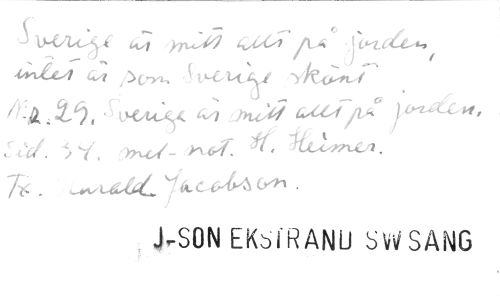 Sverige är mitt allt på jorden,
intet är som Sverige skönt
No. 29. Sverige är mitt allt på jorden.
Sid. 34. mel-not. H. Heimer.
Tx. Harald Jacobson.
J-SON EKSTRAND SW SANG